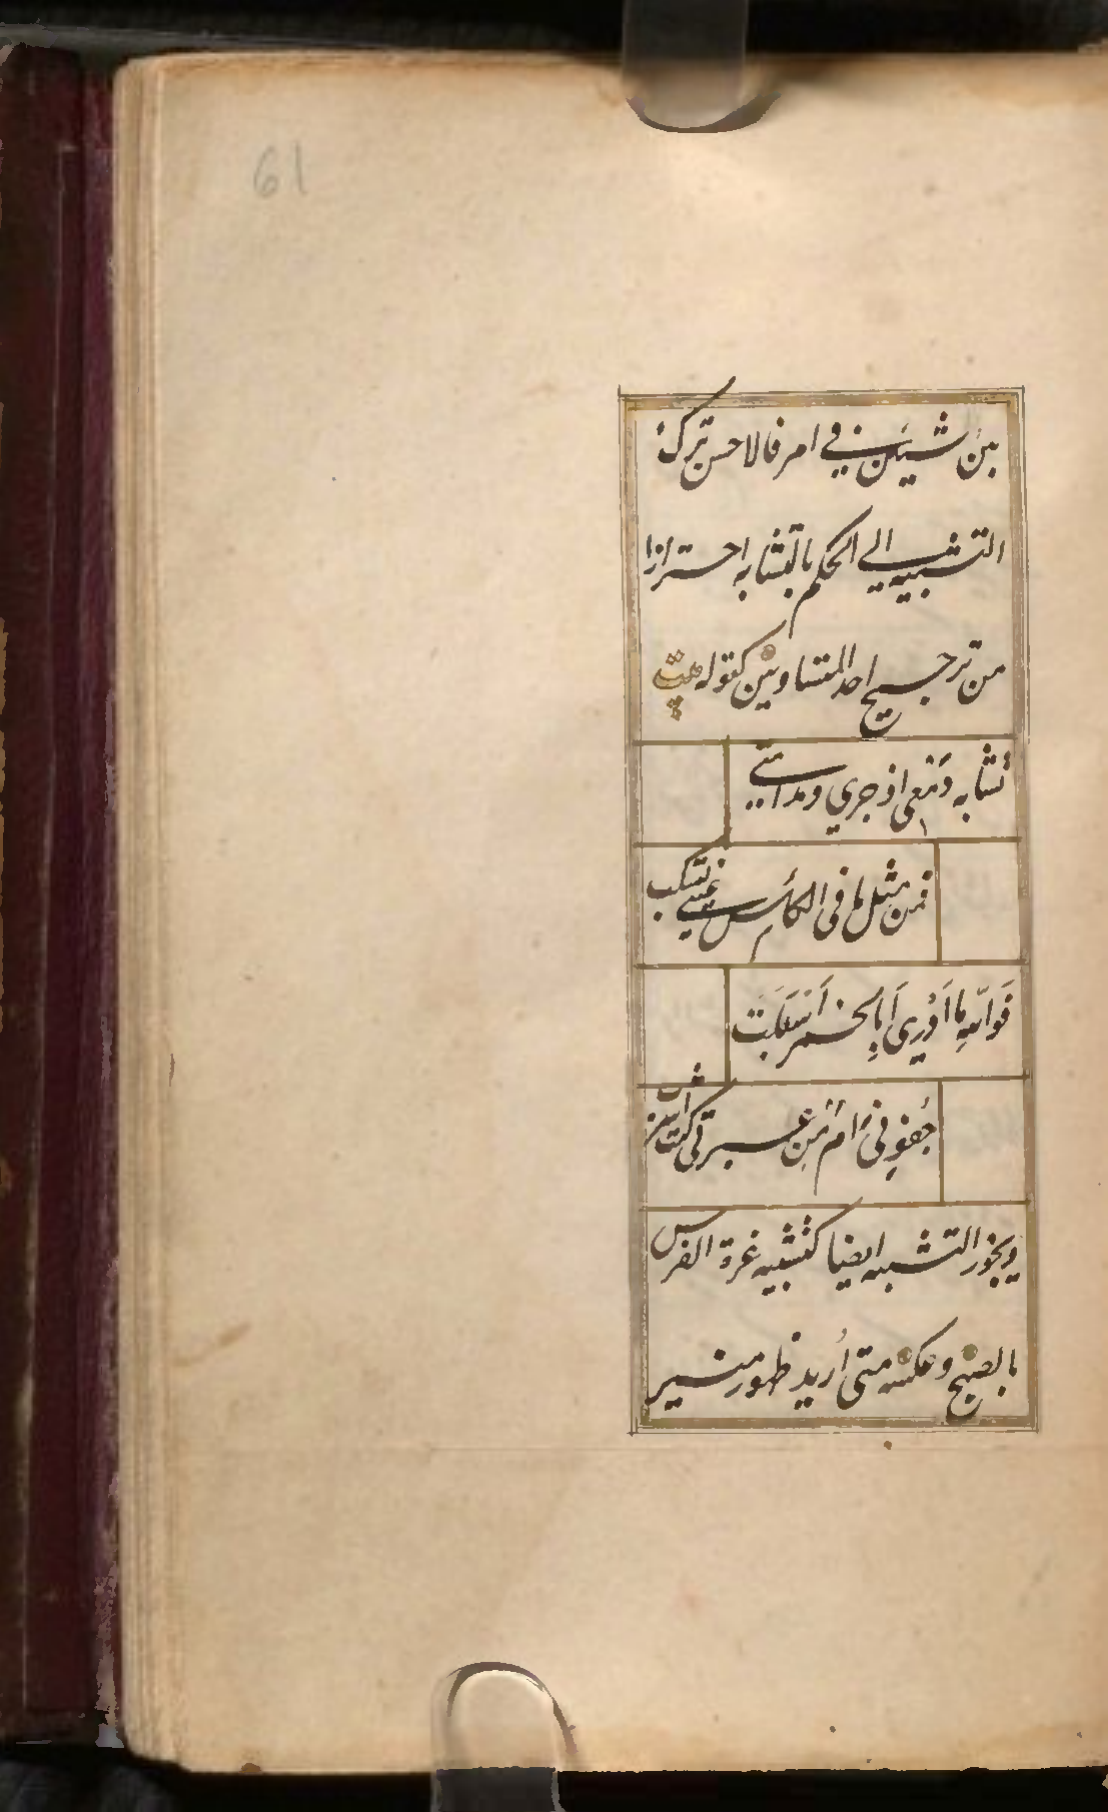 61
بين شيئين في امر فالاحسن ترك
التشبيه الي الحكم بالتشابه احترازا
من ترجيح احد المتساويين كقوله بيت
تشابه دَمْعى اذ جري ومدامتي
فمن مثل ما فى الكأس عيني تسكب
فَوَاللهِ ما اَدْرِى اَبِالخمر اَسْبَلَتْ
جُفونى اَم مِن عبرتى كنت اشرب
ويجوز التشبيه ايضا كتشبيه غرة الفرس
بالصبح وعكسه متى اُريد ظهور منير